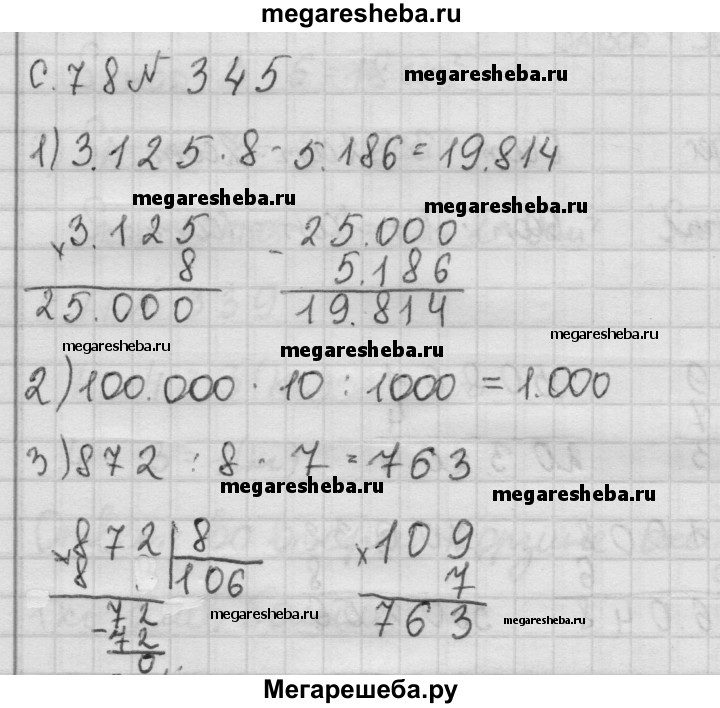 megaresheba.ru
С. 78 N 345
megaresheba.ru
1) 3.125 · 8 - 5.186 = 19.814
megaresheba.ru
megaresheba.ru
× 3.125 - 25.000
8 5.186
25.000 19.814
megaresheba.ru
megaresheba.ru
megaresheba.ru
2) 100.000 · 10 : 1000 = 1.000
3) 872 : 8 · 7 = 763
megaresheba.ru
megaresheba.ru
× 872 | 8 × 109
8 106 7
72 763
- 72
0
megaresheba.ru
megaresheba.ru
Мегарешеба.ру